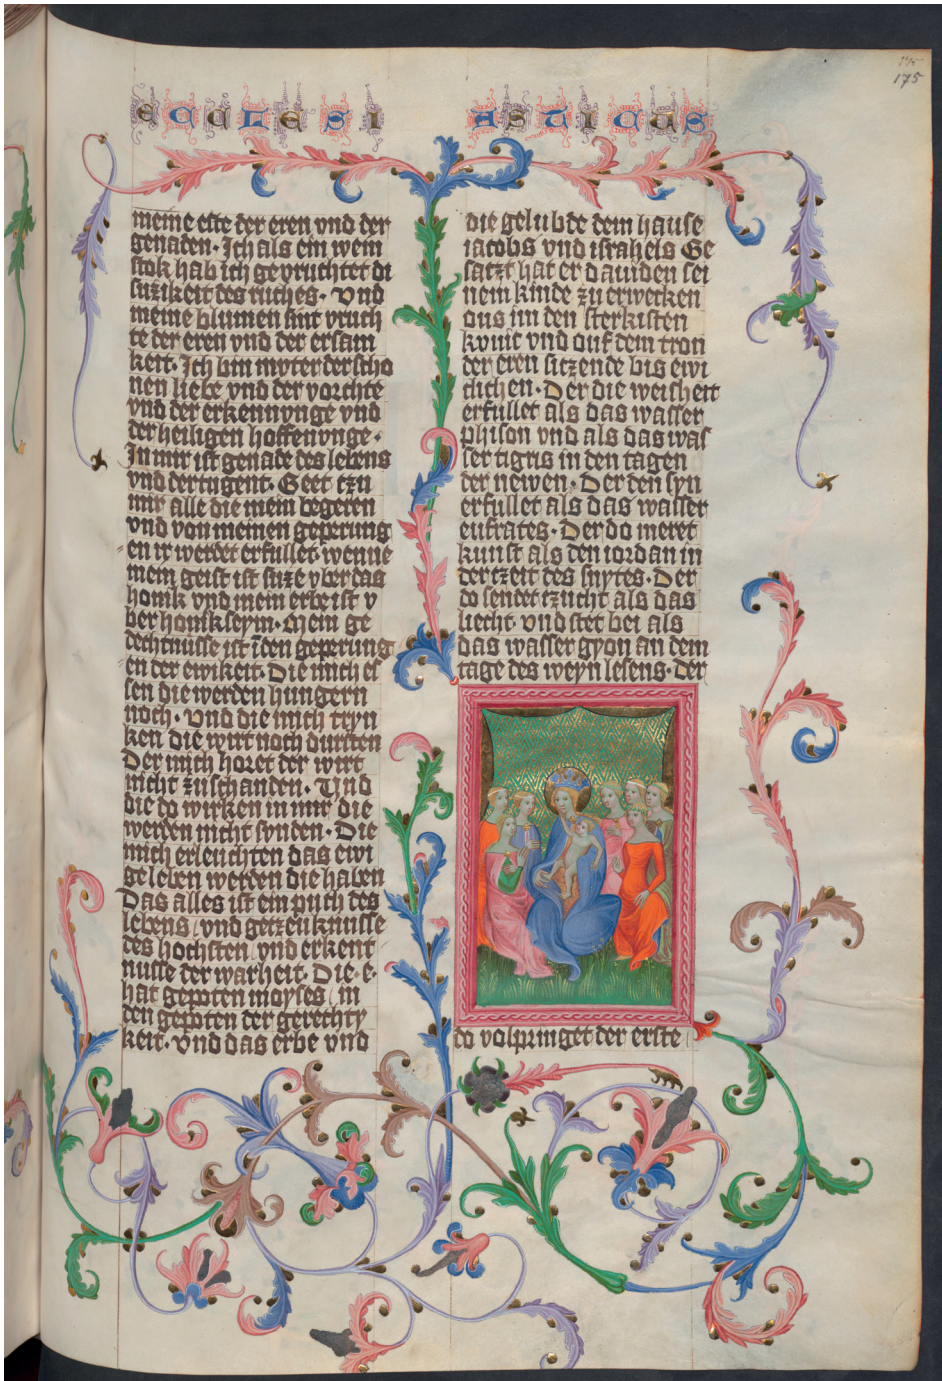 ECCLESI ASTICUS
175
meine este der eren vnd der
genaden. Ich als ein wein
stok hab ich gevruchtet di
suzikeit des ruches. Vnd
meine blumen sint vruch
te der eren vnd der ersam
keit. Ich bin muter der scho
nen liebe vnd der vorchte
vnd der erkennunge vnd
der heiligen hoffenunge.
In mir ist genade des lebens
vnd der tugent. Geet tzu
mir alle die mein begeren
vnd von meinen geperung
en ir werdet erfullet. wenne
mein geist ist suze vber das
honik vnd mein erbe ist v
ber honikseym. Mein ge
dechtnusse ist in den geperung
en der ewikeit. Die mich es
sen die werden hungern
noch. vnd die mich tryn
ken die wirt noch dursten
Der mich horet der wirt
nicht zuschanden. Vnd
die do wirken in mir die
werden nicht synden. Die
mich erleuchten das ewi
ge leben werden die haben
Das alles ist ein puch des
lebens vnd getzeuknusse
des hochsten vnd erkent
nusse der warheit. Die e.
hat gepoten moyses in
den gepoten der gerechty
keit. vnd das erbe vnd
die gelubde dem hause
iacobs vnd israhels Ge
satzt hat er dauiden sei
nem kinde zu erwecken
ous im den sterkisten
kunic vnd ouf dem tron
der eren sitzende bis ewi
clichen. Der die weisheit
erfullet als das wasser
phison vnd als das was
ser tigris in den tagen
der newen. Der den syn
erfullet als das wasser
eufrates. Der do meret
kunst als den iordan in
der tzeit des snytes. Der
do sendet tzucht als das
liecht. vnd stet bei als
das wasser gyon an dem
tage des weyn lesens. der
do volpringet der erste